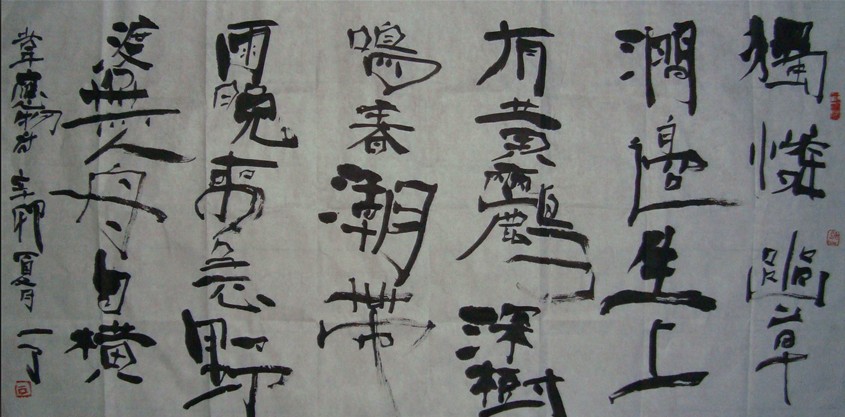 獨憐幽草
澗邊生上
有黃鸝深樹
鳴春潮帶
雨晚來急野
渡無人舟自橫
韋應物詩 辛卯夏月 一了